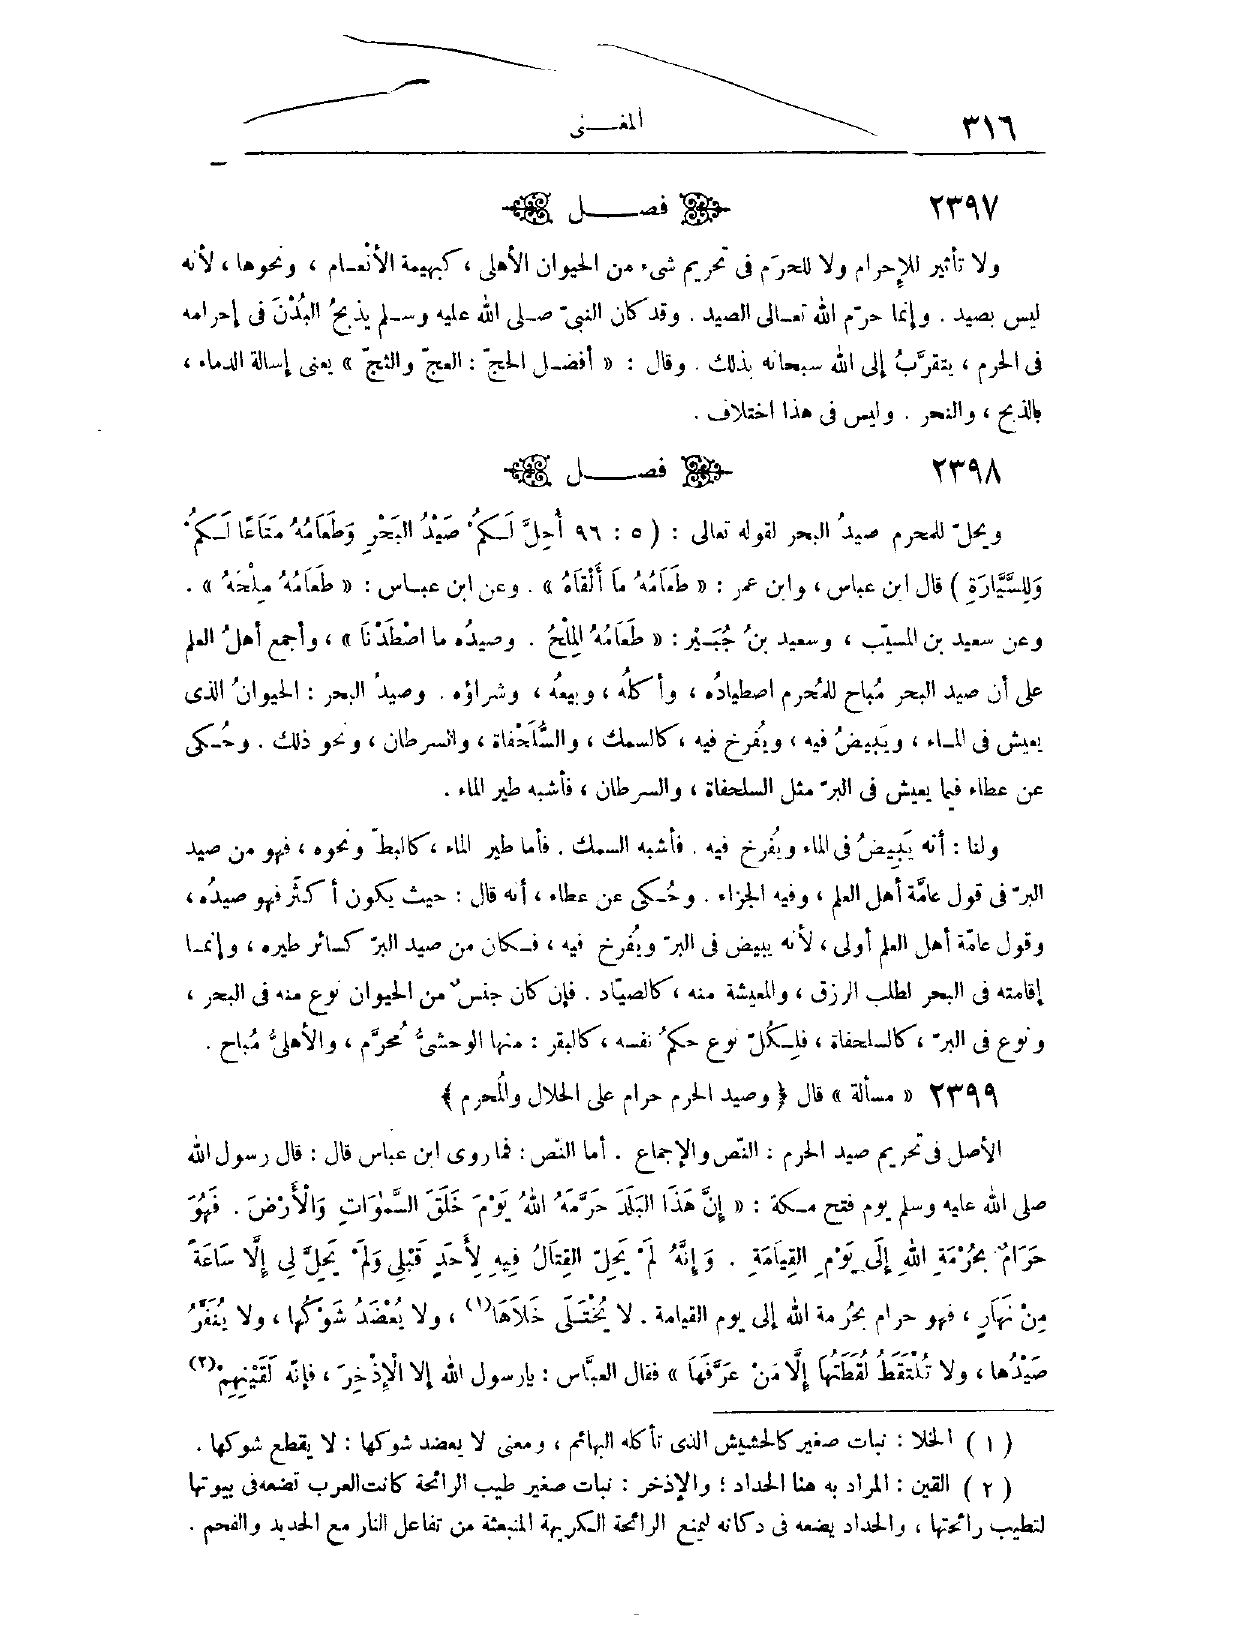 ٣١٦
المغـــنى
٢٣٩٧ فصــــل
ولا تأثير للإحرام ولا للحرَم فى تحريم شىء من الحيوان الأهلى ، كبهيمة الأنْعـام ، ونحوها ، لأنه
ليس بصيد . وإنما حرّم الله تعـالى الصيد . وقد كان النبىّ صـلى الله عليه وسـلم يذبحُ البُدْنَ فى إحرامه
فى الحرم ، يتقرّبُ إلى الله سبحانه بذلك . وقال : « أفضـل الحجّ : العجّ والثجّ » يعنى إسالة الدماء ،
بالذبح ، والنحر . وليس فى هذا اختلاف .
٢٣٩٨ فصــــل
ويحلّ للمحرم صيدُ البحر لقوله تعالى : ( ٥ : ٩٦ أُحِلَّ لَـكُمْ صَيْدُ البَحْرِ وَطَعَامُهُ مَتَاعًا لَـكُمْ
وَلِلسَّيَّارَةِ ) قال ابن عباس ، وابن عمر : « طَعَامُهُ مَا أَلْقَاهُ » . وعن ابن عبـاس : « طَعَامُهُ مِلْحَهُ » .
وعن سعيد بن المسيّب ، وسعيد بنُ جُبَـيْر : « طَعَامُهُ المِلْحُ . وصيدُه ما اصْطَدْنَا » ، وأجمع أهلُ العلم
على أن صيد البحر مُباح للمُحرم اصطيادُه ، وأكلُه ، وبيعهُ ، وشراؤه . وصيدُ البحر : الحيوانُ الذى
يعيش فى المـاء ، ويَبيضُ فيه ، ويُفرخ فيه ، كالسمك ، والسُّلَحْفاة ، والسرطان ، ونحو ذلك . وحُـكى
عن عطاء فيما يعيش فى البرّ مثل السلحفاة ، والسرطان ، فأشبه طير الماء .
ولنا : أنه يَبِيضُ فى الماء ويُفرخ فيه . فأشبه السمك . فأما طير الماء ، كالبطّ ونحوه ، فهو من صيد
البرّ فى قول عامَّة أهل العلم ، وفيه الجزاء . وحُـكى عن عطاء ، أنه قال : حيث يكون أكثَر فهو صيدُه ،
وقول عامّة أهل العلم أولى ، لأنه يبيض فى البرّ ويُفرخ فيه ، فـكان من صيد البرّ كسائر طيره ، وإنمـا
إقامته فى البحر لطلب الرزق ، والمعيشة منه ، كالصيّاد . فإن كان جنسٌ من الحيوان نوع منه فى البحر ،
ونوع فى البرّ ، كالسلحفاة ، فلِـكُلّ نوع حكمُ نفسه ، كالبقر : منها الوحشىُّ مُحرَّم ، والأهلىُّ مُباح .
٢٣٩٩ « مسألة » قال ﴿ وصيد الحرم حرام على الحلال والمُحرم ﴾
الأصل فى تحريم صيد الحرم : النّص والإجماع . أما النّص : فما روى ابن عباس قال : قال رسول الله
صلى الله عليه وسلم يوم فتح مـكة : « إِنَّ هَذَا البَلَدَ حَرَّمَهُ اللهُ يَوْمَ خَلَقَ السَّمٰوَاتِ وَالْأَرْضَ . فَهُوَ
حَرَامٌ بِحُرْمَةِ اللهِ إِلَى يَوْمِ القِيَامَةِ . وَإِنَّهُ لَمْ يَحِلّ القِتَالُ فِيهِ لِأَحَدٍ قَبْلِى وَلَمْ يَحِلَّ لِى إِلَّا سَاعَةً
مِنْ نَهَارٍ ، فهو حرام بحُرمة الله إلى يوم القيامة . لا يُخْتَـلَى خَلَاهَا(١) ، ولا يُعْضَدُ شَوْكُها ، ولا يُنَفَّرُ
صَيْدُها ، ولا تُلْتَقَطُ لُقَطَتُها إِلَّا مَنْ عَرَّفَهَا » فقال العبَّاس : يارسول الله إلا الْإِذْخِرَ ، فإنّه لَقَيْنِهِمْ(٢)
(١) الخلا : نبات صغير كالحشيش الذى تأكله البهائم ، ومعنى لا يعضد شوكها : لا يقطع شوكها .
(٢) القين : المراد به هنا الحداد ؛ والإذخر : نبات صغير طيب الرائحة كانت العرب تضعه فى بيوتها
لتطيب رائحتها ، والحداد يضعه فى دكانه ليمنع الرائحة الـكريهة المنبعثة من تفاعل النار مع الحديد والفحم .